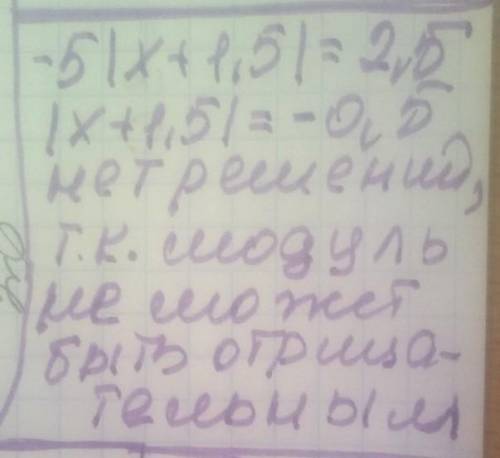 -5|x+1,5|=2,5
|x+1,5|=-0,5
нет решений,
т.к. модуль
не может
быть отрица-
тельным